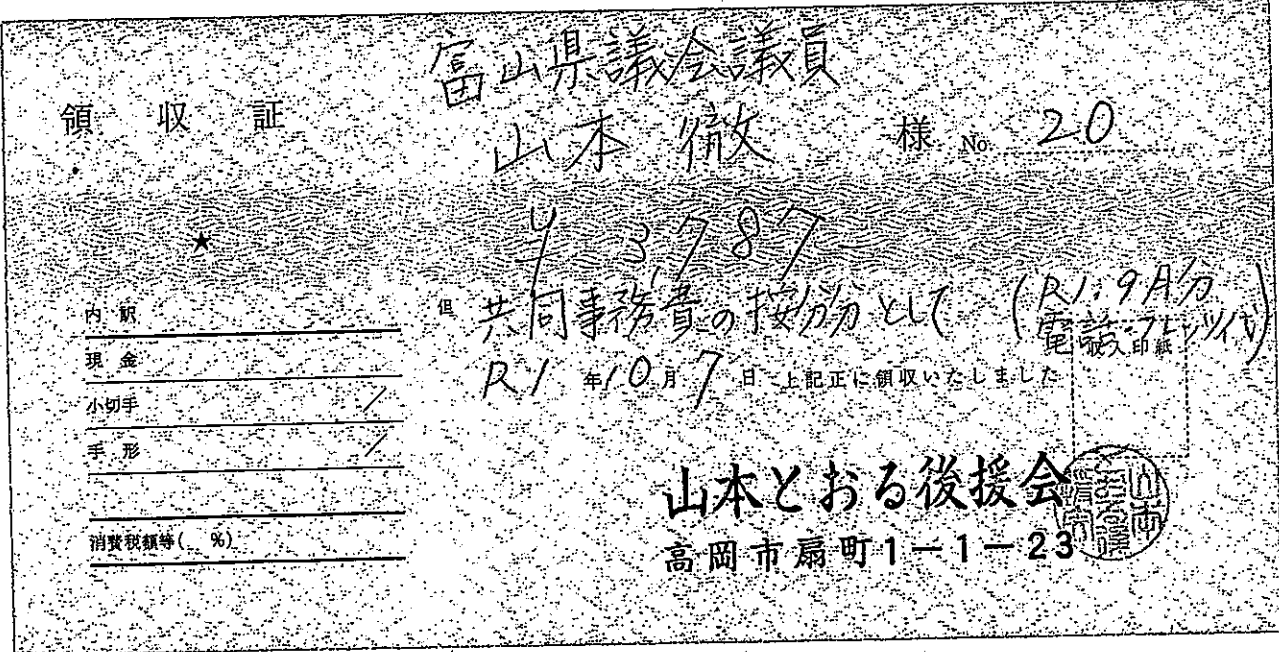 富山県議会議員
領収証
山本 徹 様 No. 20
★
¥3,787
但 共同事務費の按分分として (R1.9月分
電話・フレッツ代)
収入印紙
R1年10月7日 上記正に領収いたしました
内訳
現金
小切手 /
手形 /
消費税額等( %)
山本とおる後援会
高岡市扇町1-1-23